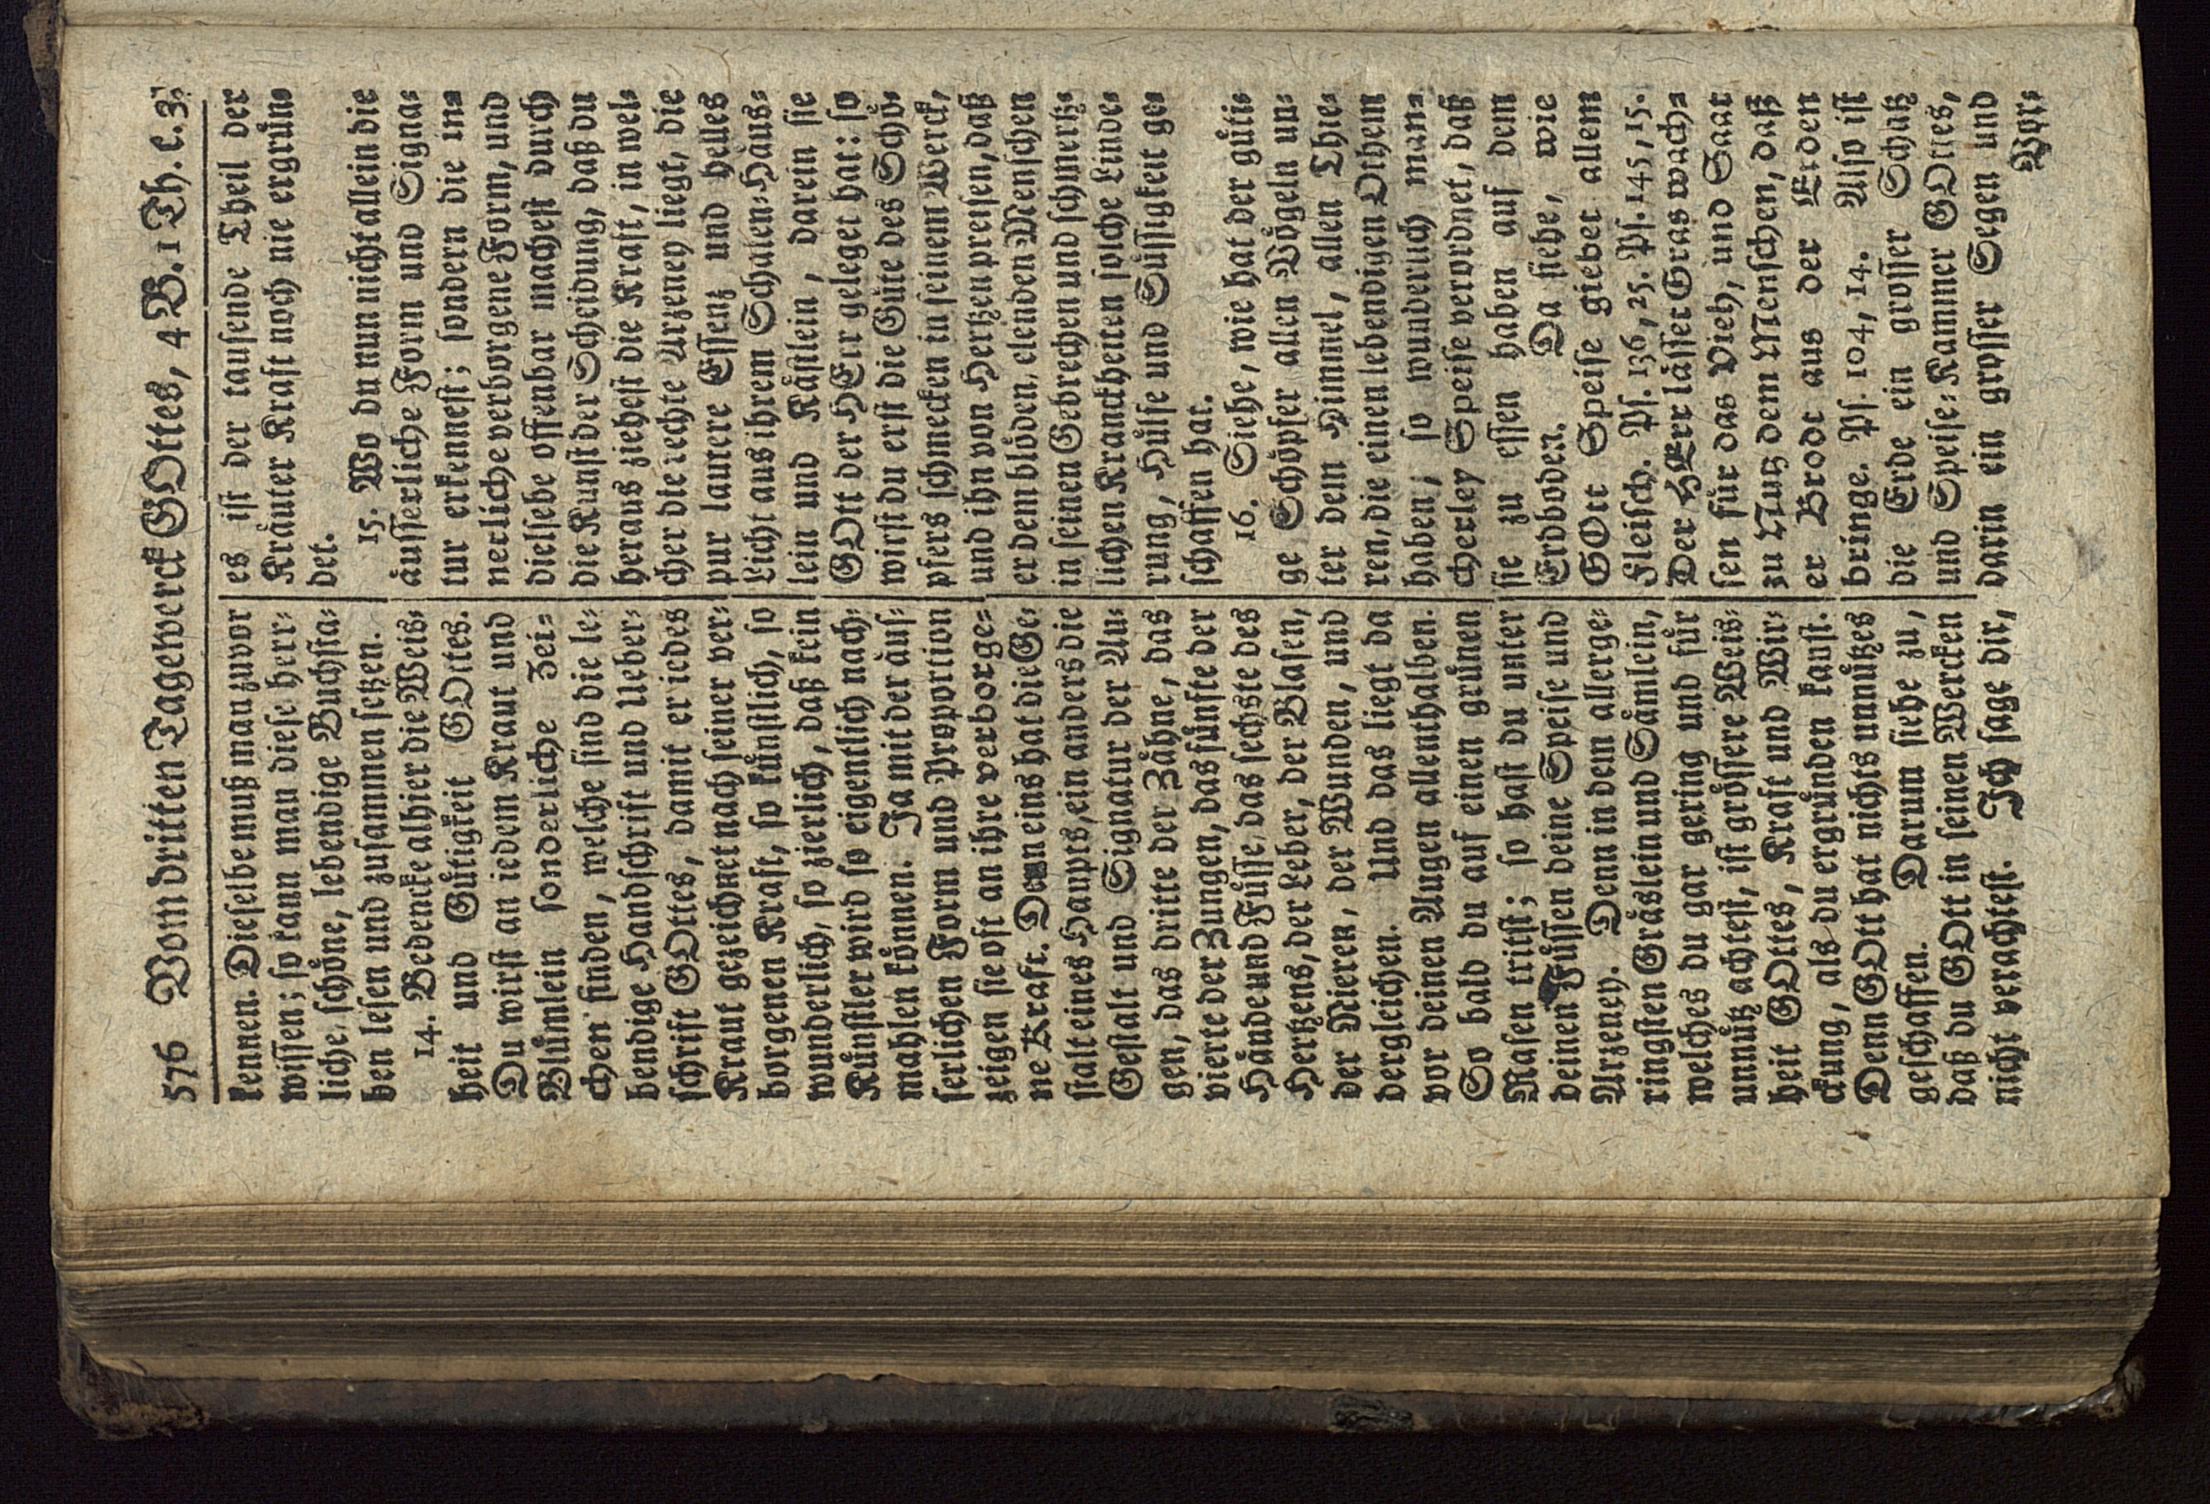 576 Vom dritten Tagewerck GOttes, 4 B. 1 Th. c. 3.
kennen. Dieselbe muß man zuvor
wissen; so kann man diese herr-
liche, schöne, lebendige Buchsta-
ben lesen und zusammen setzen.
14. Bedencke alhier die Weis-
heit und Gütigkeit GOttes.
Du wirst an iedem Kraut und
Blümlein sonderliche Zei-
chen finden, welche sind die le-
bendige Handschrift und Ueber-
schrift GOttes, damit er iedes
Kraut gezeichnet nach seiner ver-
borgenen Kraft, so künstlich, so
wunderlich, so zierlich, daß kein
Künstler wird so eigentlich nach-
mahlen können. Ja mit der äus-
serlichen Form und Proportion
zeigen sie oft an ihre verborge-
ne Kraft. Denn eins hat die Ge-
stalt eines Haupts, ein anders die
Gestalt und Signatur der Au-
gen, das dritte der Zähne, das
vierte der Zungen, das fünfte der
Hände und Füsse, das sechste des
Hertzens, der Leber, der Blasen,
der Nieren, der Wunden, und
dergleichen. Und das liegt da
vor deinen Augen allenthalben.
So bald du auf einen grünen
Rasen tritst; so hast du unter
deinen Füssen deine Speise und
Arzeney. Denn in dem allerge-
ringsten Gräslein und Sämlein,
welches du gar gering und für
unnütz achtest, ist grössere Weis-
heit GOttes, Kraft und Wir-
ckung, als du ergründen kanst.
Denn GOtt hat nichts unnützes
geschaffen. Darum siehe zu,
daß du GOtt in seinen Wercken
nicht verachtest. Ich sage dir,
es ist der tausende Theil der
Kräuter Kraft noch nie ergrün-
det.
15. Wo du nun nicht allein die
äusserliche Form und Signa-
tur erkennest; sondern die in-
nerliche verborgene Form, und
dieselbe offenbar machest durch
die Kunst der Scheidung, daß du
heraus ziehest die Kraft, in wel-
cher die rechte Arzeney liegt, die
pur lautere Essentz und helles
Licht aus ihrem Schalen-Häus-
lein und Kästlein, darein sie
GOtt der HErr geleget hat: so
wirst du erst die Güte des Schö-
pfers schmecken in seinem Werck,
und ihn von Hertzen preisen, daß
er dem blöden, elenden Menschen
in seinen Gebrechen und schmertz-
lichen Kranckheiten solche Linde-
rung, Hülfe und Süssigkeit ge-
schaffen hat.
16. Siehe, wie hat der güti-
ge Schöpfer allen Vögeln un-
ter dem Himmel, allen Thie-
ren, die einen lebendigen Othem
haben, so wunderlich man-
cherley Speise verordnet, daß
sie zu essen haben auf dem
Erdboden. Da siehe, wie
GOtt Speise giebet allem
Fleisch. Ps. 136, 25. Ps. 145, 15.
Der HErr lässet Gras wach-
sen für das Vieh, und Saat
zu Nutz dem Menschen, daß
er Brodt aus der Erden
bringe. Ps. 104, 14. Also ist
die Erde ein grosser Schatz
und Speise-Kammer GOttes,
darin ein grosser Segen und
Vor-